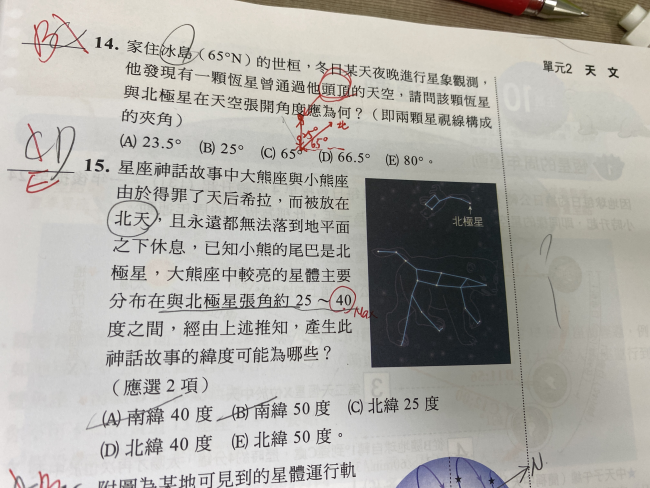 B
14. 家住冰島（65°N）的世桓，冬日某天夜晚進行星象觀測，
單元2 天 文
他發現有一顆恆星曾通過他頭頂的天空，請問該顆恆星
與北極星在天空張開角度應為何？（即兩顆星視線構成
的夾角）
北
25°
65°
(A) 23.5° (B) 25° (C) 65° (D) 66.5° (E) 80°。
CD
E
15. 星座神話故事中大熊座與小熊座
由於得罪了天后希拉，而被放在
北天，且永遠都無法落到地平面
之下休息，已知小熊的尾巴是北
極星，大熊座中較亮的星體主要
分布在與北極星張角約 25 ~ 40
度之間，經由上述推知，產生此
神話故事的緯度可能為哪些？
（應選 2 項）
北極星
(A) 南緯 40 度 (B) 南緯 50 度 (C) 北緯 25 度
(D) 北緯 40 度 (E) 北緯 50 度。
附圖為某地可見到的星體運行軌
N